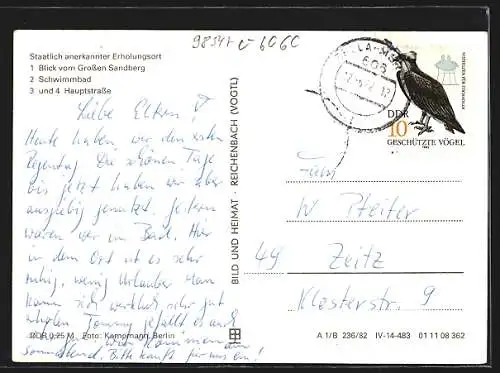 98547 v-6060
Staatlich anerkannter Erholungsort
1 Blick vom Großen Sandberg
2 Schwimmbad
3 und 4 Hauptstraße
Liebe Eltern!
Heute haben wir den ersten
Regentag. Die schönen Tage
bis jetzt haben wir aber
ausgiebig genutzt. Gestern
waren wir im Bad. Hier
in dem Ort ist es sehr
ruhig, wenig Urlauber. Man
kann sich wirklich sehr gut
erholen. Tommy gefällt es auch
DDR 0,25 M Foto: Kampmann, Berlin
Sonnabend. Bitte kauft für uns ein!
BILD UND HEIMAT REICHENBACH (VOGTL)
606
DDR
10
GESCHÜTZTE VÖGEL
Fam.
W Pfeifer
49 Zeitz
Klosterstr. 9
A 1/B 236/82 IV-14-483 01 11 08 362